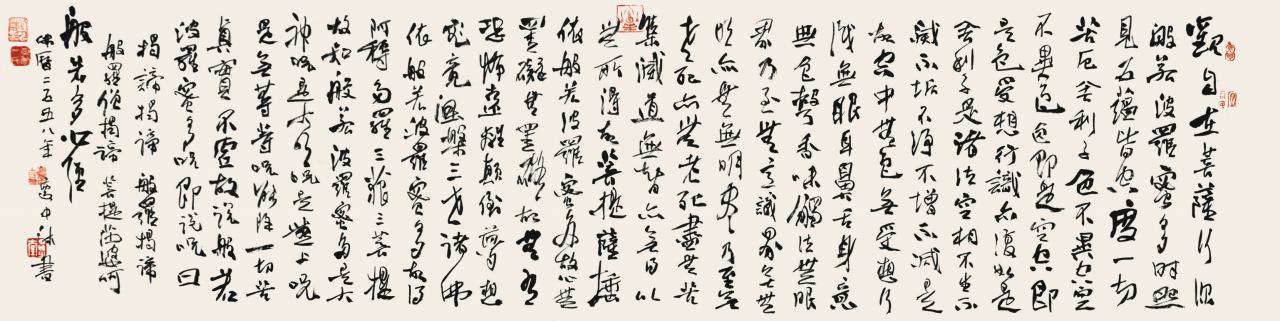 觀自在菩薩行深
般若波羅蜜多時照
見五蘊皆空度一切
苦厄舍利子色不異空空
不異色色即是空空即
是色受想行識亦復如是
舍利子是諸法空相不生不
滅不垢不淨不增不減是
故空中無色無受想行
識無眼耳鼻舌身意
無色聲香味觸法無眼
界乃至無意識界無無
明亦無無明盡乃至無
老死亦無老死盡無苦
集滅道無智亦無得以
無所得故菩提薩埵
依般若波羅蜜多故心無
罣礙無罣礙故無有
恐怖遠離顛倒夢想
究竟涅槃三世諸佛
依般若波羅蜜多故得
阿耨多羅三藐三菩提
故知般若波羅蜜多是大
神咒是大明咒是無上咒
是無等等咒能除一切苦
真實不虛故說般若
波羅蜜多咒即說咒曰
揭諦揭諦 般羅揭諦
般羅僧揭諦 菩提薩婆訶
般若多心經
佛曆二五五八年
書